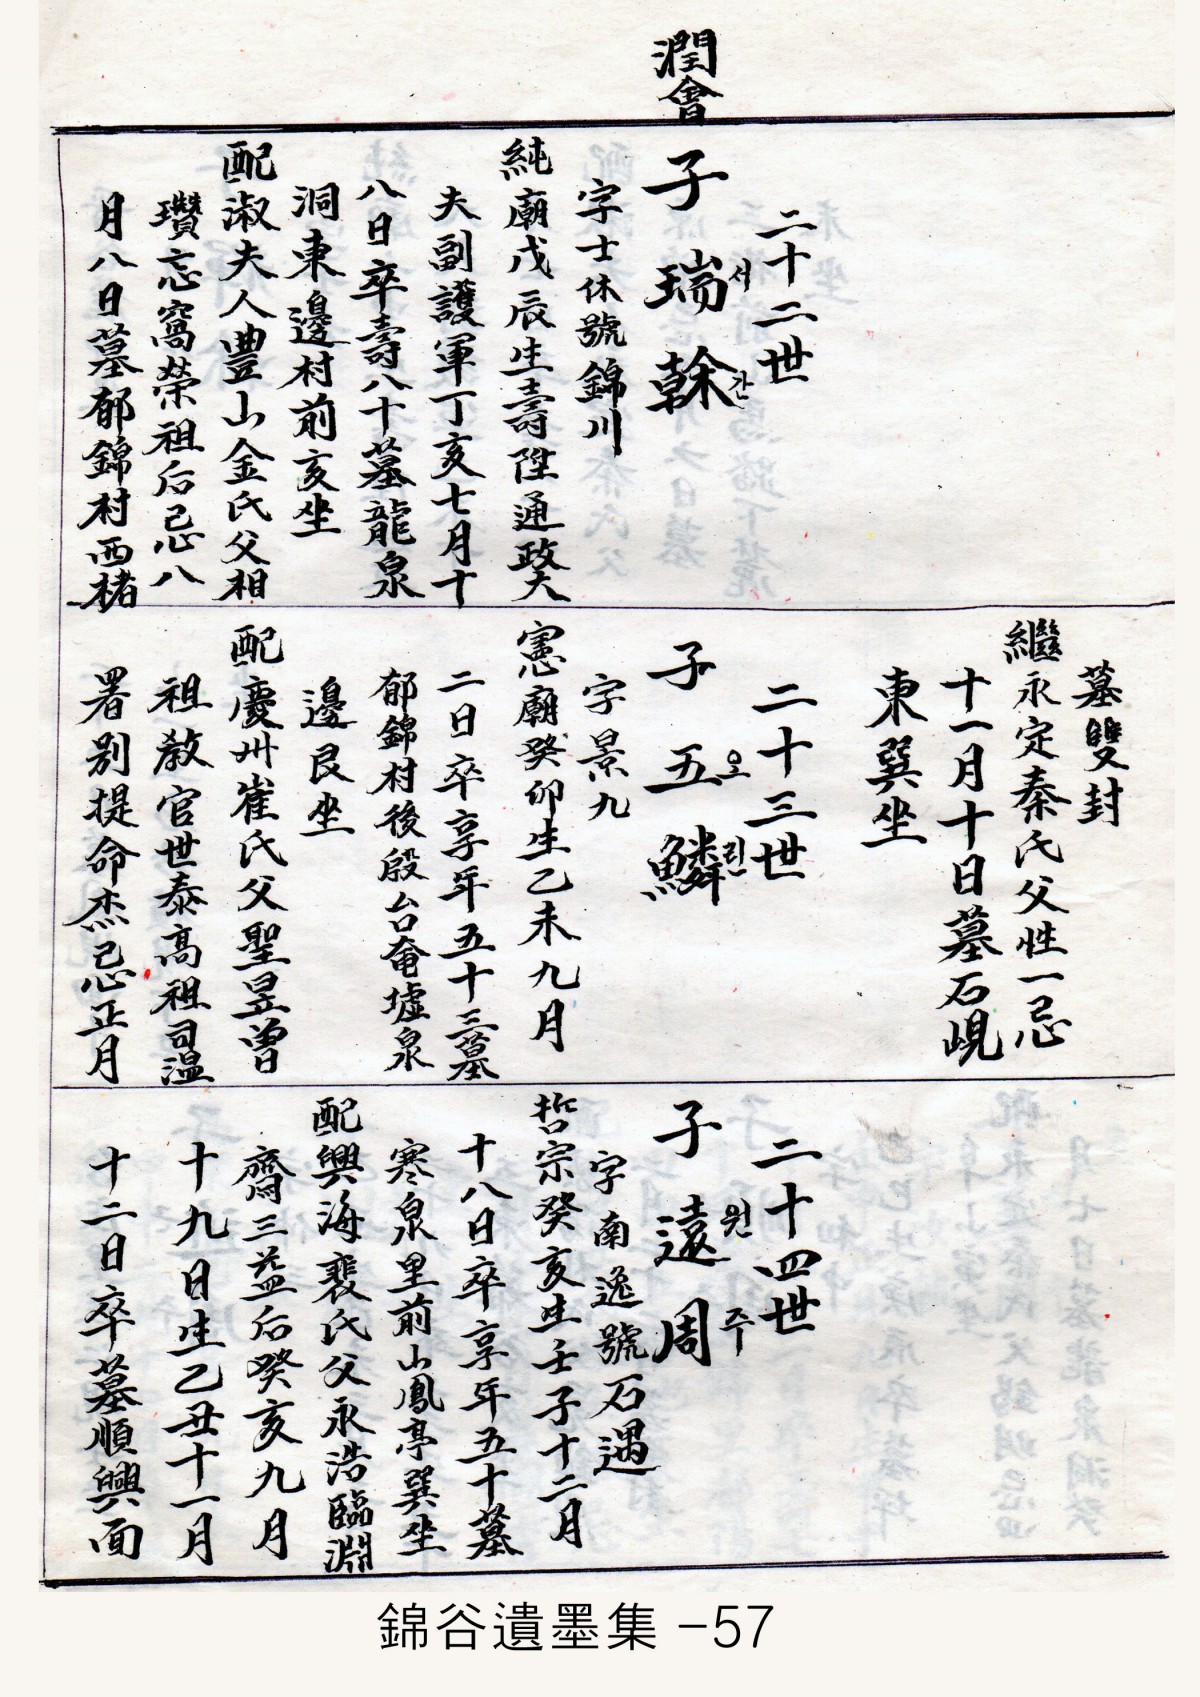 潤會
二十二世
子 瑞榦
서간
字士休號錦川
純廟戊辰生壽陞通政大
夫副護軍丁亥七月十
八日卒壽八十墓龍泉
洞東邊村前亥坐
配淑夫人豊山金氏父相
瓚忘窩榮祖后忌八
月八日墓郁錦村西楮
墓雙封
繼永定秦氏父性一忌
十一月十日墓石峴
東巽坐
二十三世
子 五鱗
오린
字景九
憲廟癸卯生乙未九月
二日卒享年五十三墓
郁錦村後殷台奄墟泉
邊艮坐
配慶州崔氏父聖昱曾
祖教官世泰高祖司溫
署別提命杰忌正月
二十四世
子 遠周
원주
字南逸號石遇
哲宗癸亥生壬子十二月
十八日卒享年五十墓
寒泉里前山鳳亭巽坐
配興海裵氏父永浩臨淵
齋三益后癸亥九月
十九日生乙丑十一月
十二日卒墓順興面
錦谷遺墨集 -57